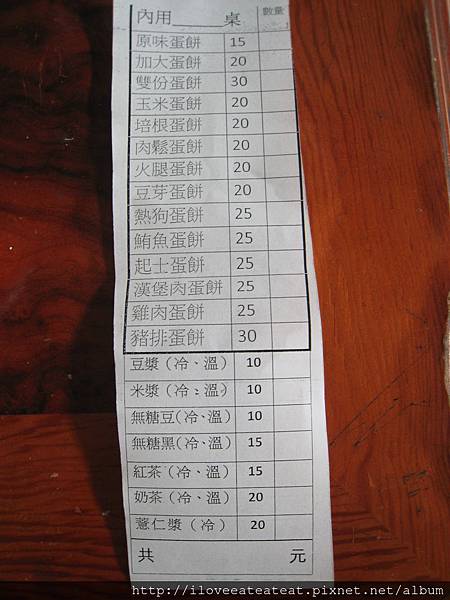 內用____桌 數量
原味蛋餅 15
加大蛋餅 20
雙份蛋餅 30
玉米蛋餅 20
培根蛋餅 20
肉鬆蛋餅 20
火腿蛋餅 20
豆芽蛋餅 20
熱狗蛋餅 25
鮪魚蛋餅 25
起士蛋餅 25
漢堡肉蛋餅 25
雞肉蛋餅 25
豬排蛋餅 30
豆漿(冷、溫) 10
米漿(冷、溫) 10
無糖豆(冷、溫) 10
無糖黑(冷、溫) 15
紅茶(冷、溫) 15
奶茶(冷、溫) 20
薏仁漿(冷) 20
共 元
http://iloveeateateat.pixnet.net/album